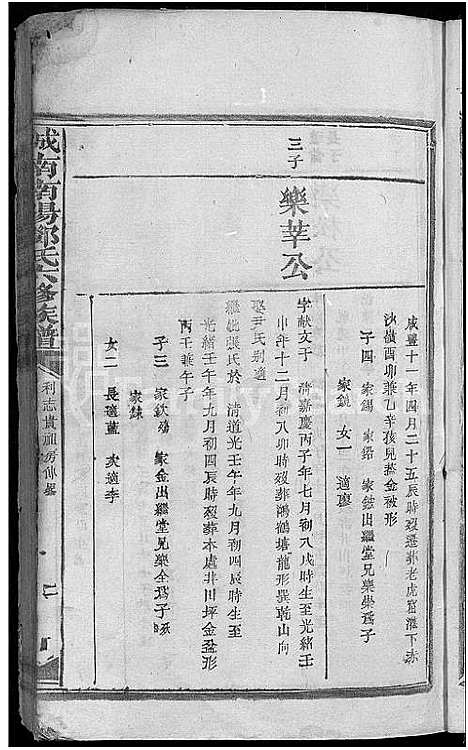 咸豐十一年四月二十五辰時歿葬老虎窩灘下赤
沙嶺酉卯兼乙辛孩兒攬金被形
子四 家錫 家鋁 家鉣出繼堂兄樂崇爲子
家鏡 女一 適廖
三子
樂莘公
字獻文于 清嘉慶丙子年七月初八戌時生至光緒壬
申年十二月初八卯時歿葬鴻鶴塘龍形巽乾山向
娶尹氏别適
繼妣張氏於 清道光壬午年九月初四辰時生至
光緒壬午年九月初四辰時歿葬本處井川坪金盆形
丙壬兼午子
子三 家欽殤 家金出繼堂兄樂全爲子
家鍊
女二 長適藍 次適李
城南南陽鄧氏六修族譜
利志貴祖房傳畧